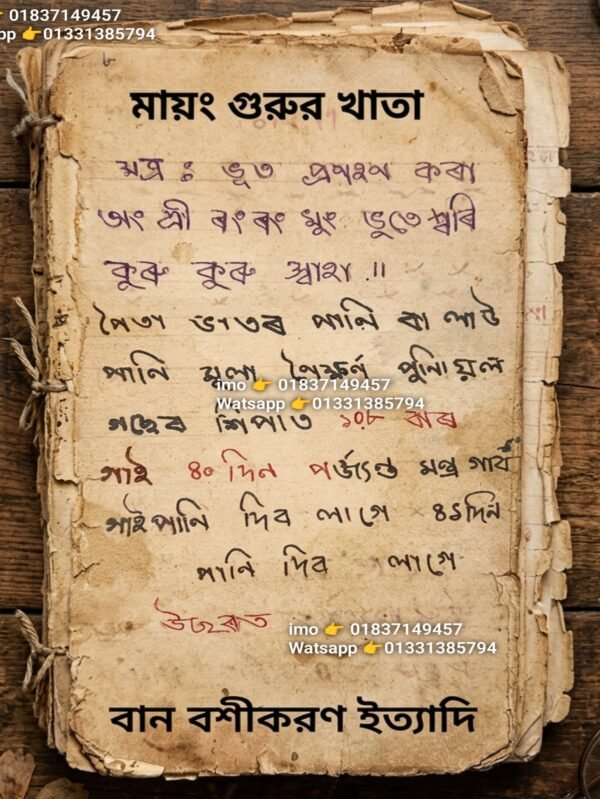 01837149457
pp 👉01331385794
৮
মায়ং গুরুর খাতা
মন্ত্ৰ : ভূত প্ৰসন্ন কৰা
অং শ্ৰী ৰং ৰং মুং ভুতেশ্বৰি
কুৰু কুৰু স্বাহা .॥
পৈতা ভাতৰ পানি বা লাউ
পানি
imo 👉 01837149457
Watsapp 👉01331385794
গছেৰ শিপাত ১০৮ বাৰ
গাই ৪০ দিন পৰ্জ্যন্ত মন্ত্ৰ গাব
গাই পানি দিব লাগে ৪১দিন
পানি দিব লাগে
imo 👉 01837149457
Watsapp 👉01331385794
বান বশীকরণ ইত্যাদি